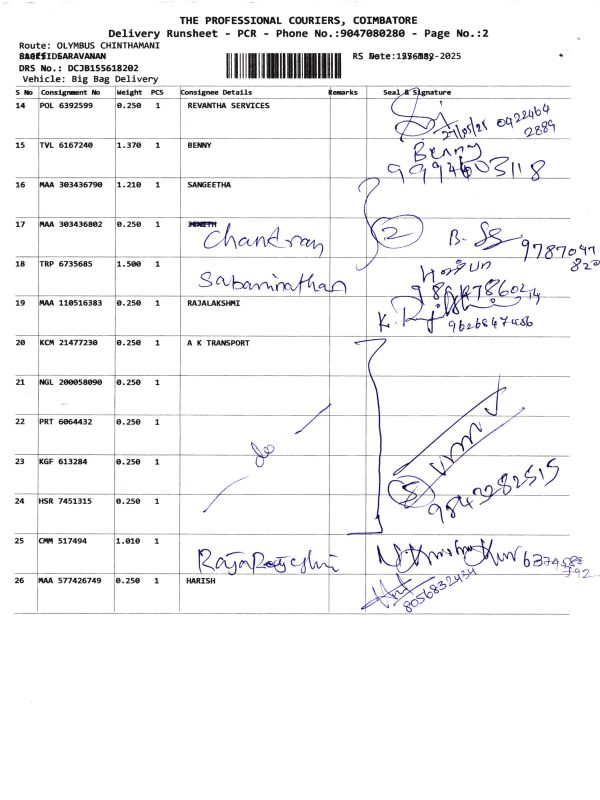 THE PROFESSIONAL COURIERS, COIMBATORE
Delivery Runsheet - PCR - Phone No.:9047080280 - Page No.:2
Route: OLYMBUS CHINTHAMANI
SARAVANAN
RS Note: -2025
DRS No.: DCJB155618202
Vehicle: Big Bag Delivery
S No Consignment No Weight PCS Consignee Details Remarks Seal & Signature
14 POL 6392599 0.250 1 REVANTHA SERVICES 27/05/25 0422464
2889
15 TVL 6167240 1.370 1 BENNY Benny
16 MAA 303436790 1.210 1 SANGEETHA
17 MAA 303436802 0.250 1 Chandran 2 9787047
820
18 TRP 6735685 1.500 1 Sabarinathan
19 MAA 110516383 0.250 1 RAJALAKSHMI 9626847486
20 KCM 21477230 0.250 1 A K TRANSPORT
21 NGL 200058090 0.250 1
22 PRT 6064432 0.250 1
23 KGF 613284 0.250 1 do 5
24 HSR 7451315 0.250 1
25 CMM 517494 1.010 1
26 MAA 577426749 0.250 1 HARISH 8056832434